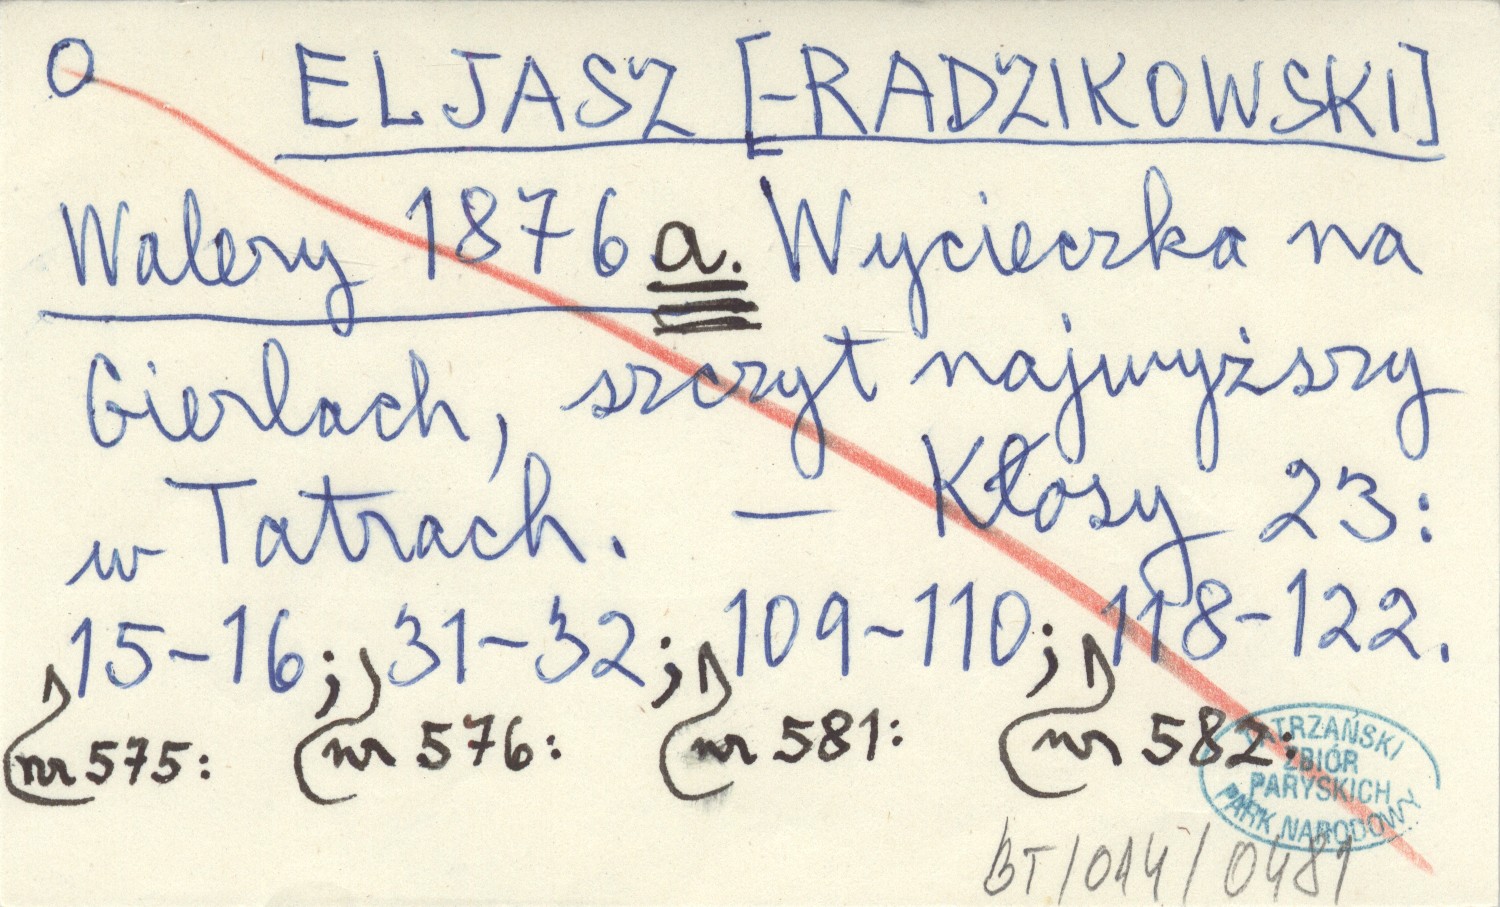 O ELJASZ [-RADZIKOWSKI]
Walery 1876 a. Wycieczka na
Gierlach, szczyt najwyższy
w Tatrach. — Kłosy 23:
15-16; 31-32; 109-110; 118-122.
nr 575: nr 576: nr 581: nr 582:
TATRZAŃSKI
ZBIÓR
PARYSKICH
PARK NARODOWY
BT/014/0481